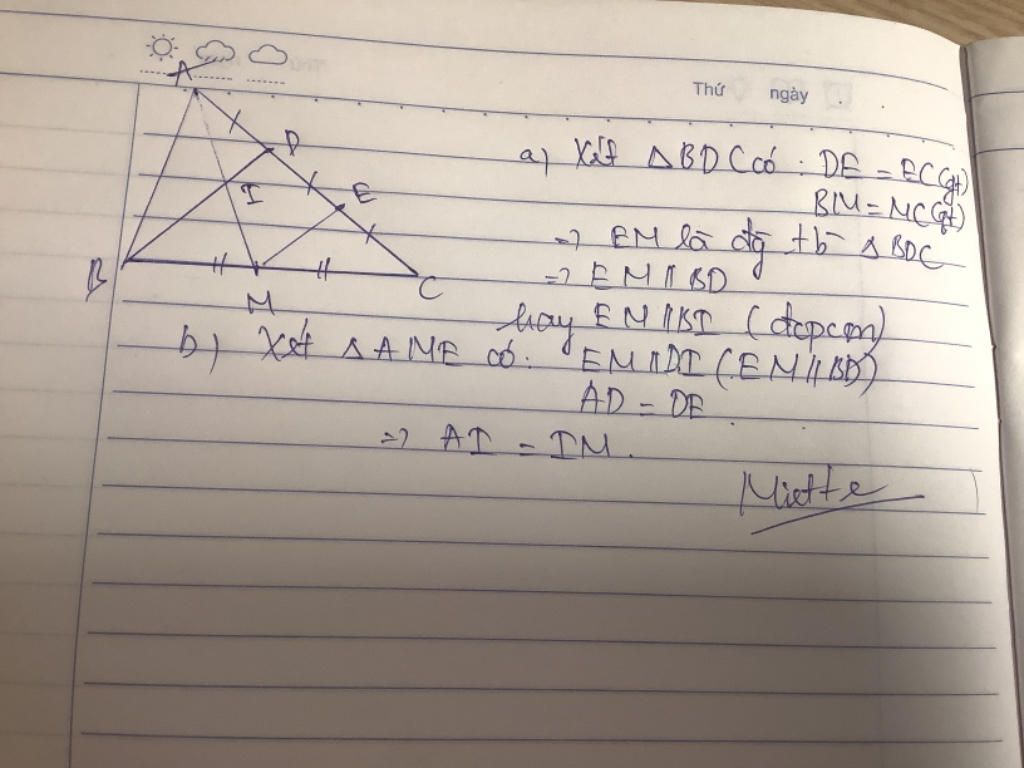 Thứ ngày
A
D
I
E
B
M
C
a) Xét △BDC có: DE = EC (gt)
BM = MC (gt)
=> EM là đg tb △BDC
=> EM // BD
hay EM // BI (đcpcm)
b) Xét △AME có: EM // DI (EM // BD)
AD = DE
=> AI = IM.
Miette